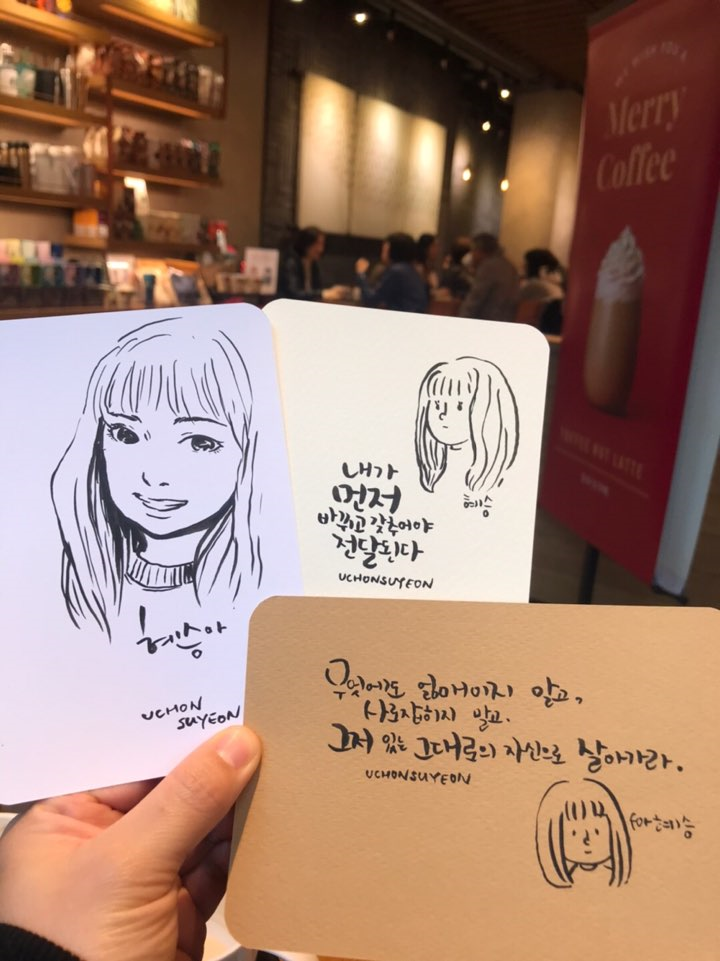 WE WISH YOU A
Merry
Coffee
TOFFEE NUT LATTE
혜승아
UCHON
SUYEON
내가
먼저
바뀌고 갖추어야
전달된다
UCHONSUYEON
혜승
무엇에도 얽매이지 말고,
사로잡히지 말고.
그저 있는 그대로의 자신으로 살아가라.
UCHONSUYEON
for 혜승